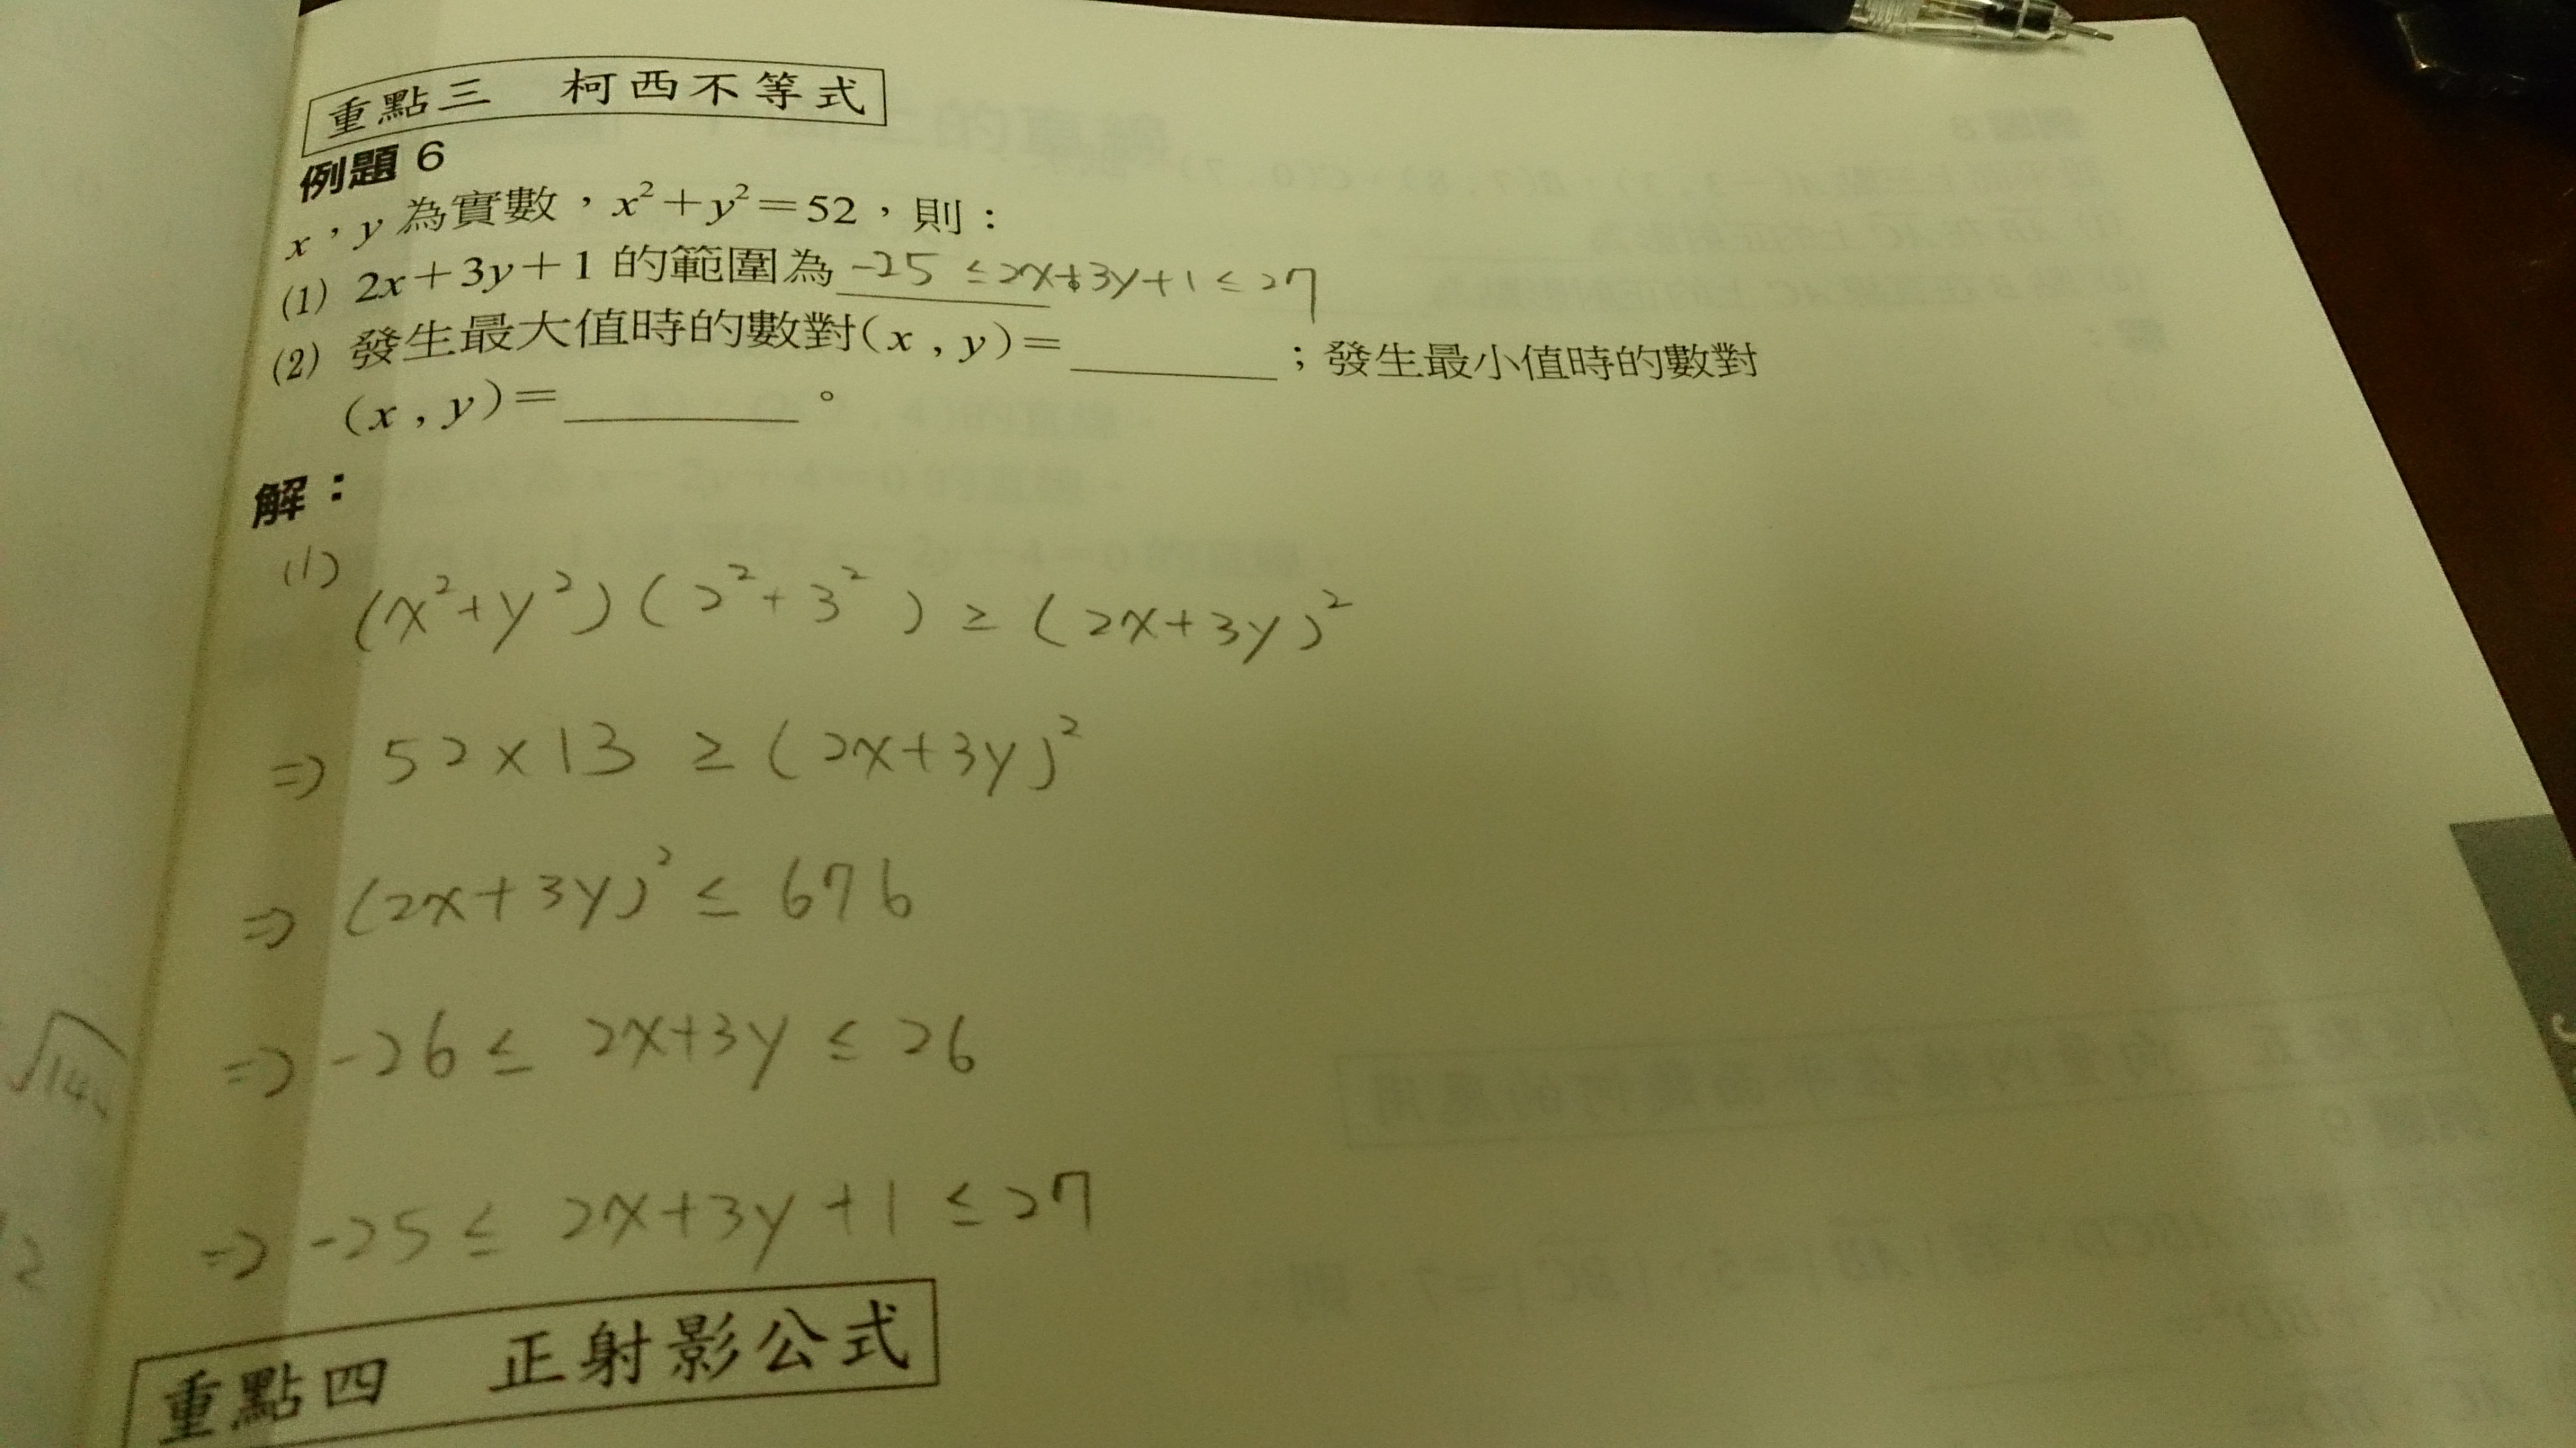 重點三 柯西不等式
例題 6
x，y 為實數，x²+y²=52，則：
(1) 2x+3y+1 的範圍為 -25 ≤ 2x+3y+1 ≤ 27
(2) 發生最大值時的數對(x , y)=________；發生最小值時的數對
(x , y)=________。
解：
(1)
(x²+y²)(2²+3²) ≥ (2x+3y)²
⇒ 52×13 ≥ (2x+3y)²
⇒ (2x+3y)² ≤ 676
⇒ -26 ≤ 2x+3y ≤ 26
⇒ -25 ≤ 2x+3y+1 ≤ 27
重點四 正射影公式